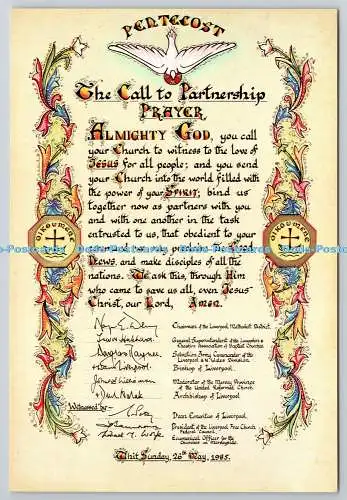 PENTECOST
The Call to Partnership
PRAYER
ALMIGHTY GOD, you call
your Church to witness to the love of
JESUS for all people; and you send
your Church into the world filled with
the power of your SPIRIT; bind us
together now as partners with you
and with one another in the task
entrusted to us, that obedient to your
News, and make disciples of all the
nations. We ask this, through Him
who came to save us all, even Jesus
Christ, our Lord, Amen.
OIKOUMENE
OIKOUMENE
Chairman of the Liverpool Methodist District.
General Superintendent of the Lancashire &
Cheshire Association of Baptist Churches
Salvation Army Commander of the
Liverpool & N/Wales Division.
Bishop of Liverpool.
Moderator of the Mersey Province
of the United Reformed Church
Archbishop of Liverpool.
Witnessed by
Dean Emeritus of Liverpool.
President of the Liverpool Free Church
Federal Council.
Ecumenical Officer for the
Churches on Merseyside.
Whit Sunday, 26th May, 1985.